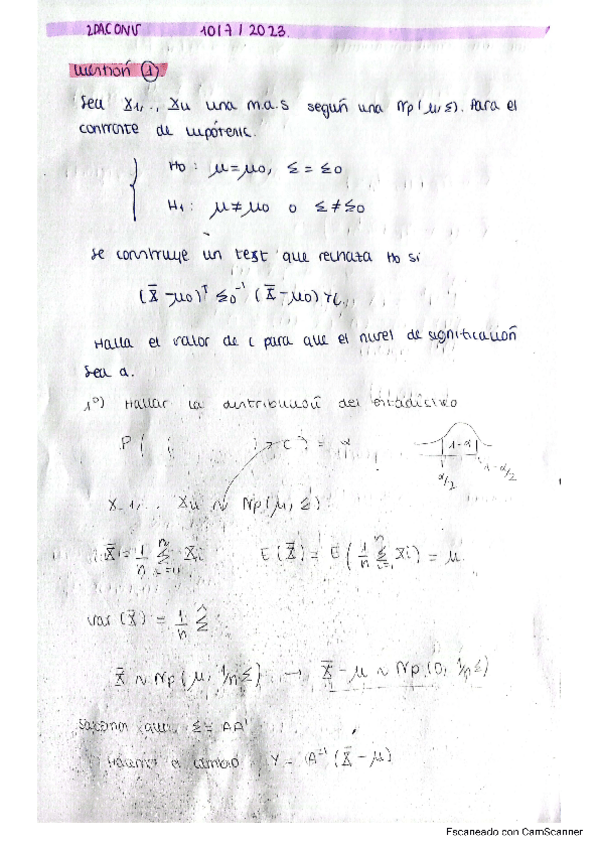 2DA CONV 10/7/2023.
Cuestión ①
Sea X1,.., Xn una m.a.s según una Np(μ,Σ). Para el
contraste de hipótesis.
H0: μ=μ0, Σ=Σ0
H1: μ≠μ0 o Σ≠Σ0
Se construye un test que rechaza H0 si
(X̄-μ0)ᵀ Σ0⁻¹ (X̄-μ0) > c
Halla el valor de c para que el nivel de significación
sea α.
1º) Hallar la distribución del estadístico
P( > c) = α 1-α
α/2 1-α/2
X1,.. Xn ~ Np(μ,Σ)
X̄ = 1/n Σ i=1 n Xi E(X̄) = E(1/n Σ i=1 n Xi) = μ
var(X̄) = 1/n Σ
X̄ ~ Np(μ, 1/n Σ) → X̄-μ ~ Np(0, 1/n Σ)
Sabemos que Σ = AA'
Hacemos el cambio Y = A⁻¹(X̄-μ)
Escaneado con CamScanner